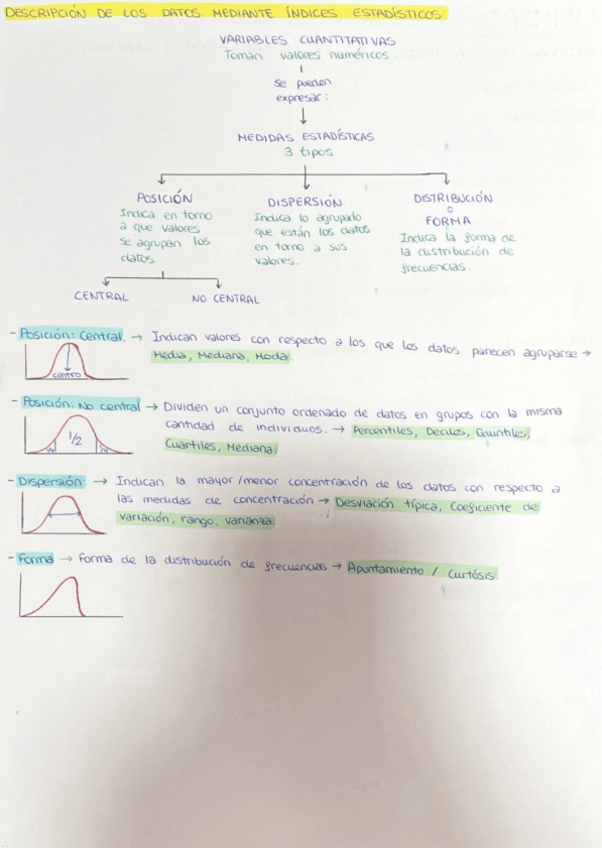 DESCRIPCIÓN DE LOS DATOS MEDIANTE ÍNDICES ESTADÍSTICOS
VARIABLES CUANTITATIVAS
Toman valores numéricos.
Se pueden
expresar:
MEDIDAS ESTADÍSTICAS
3 tipos
POSICIÓN
Indica en torno
a que valores
se agrupan los
datos.
DISPERSIÓN
Indica lo agrupado
que están los datos
en torno a sus
valores.
DISTRIBUCIÓN
O
FORMA
Indica la forma de
la distribución de
frecuencias.
CENTRAL
NO CENTRAL
- Posición: Central. → Indican valores con respecto a los que los datos parecen agruparse →
Media, Mediana, Moda.
centro
- Posición: No central → Dividen un conjunto ordenado de datos en grupos con la misma
cantidad de individuos. → Percentiles, Deciles, Quintiles,
Cuartiles, Mediana.
1/2
- Dispersión → Indican la mayor/menor concentración de los datos con respecto a
las medidas de concentración → Desviación típica, Coeficiente de
variación, rango, varianza.
- Forma → Forma de la distribución de frecuencias → Apuntamiento / Curtósis.